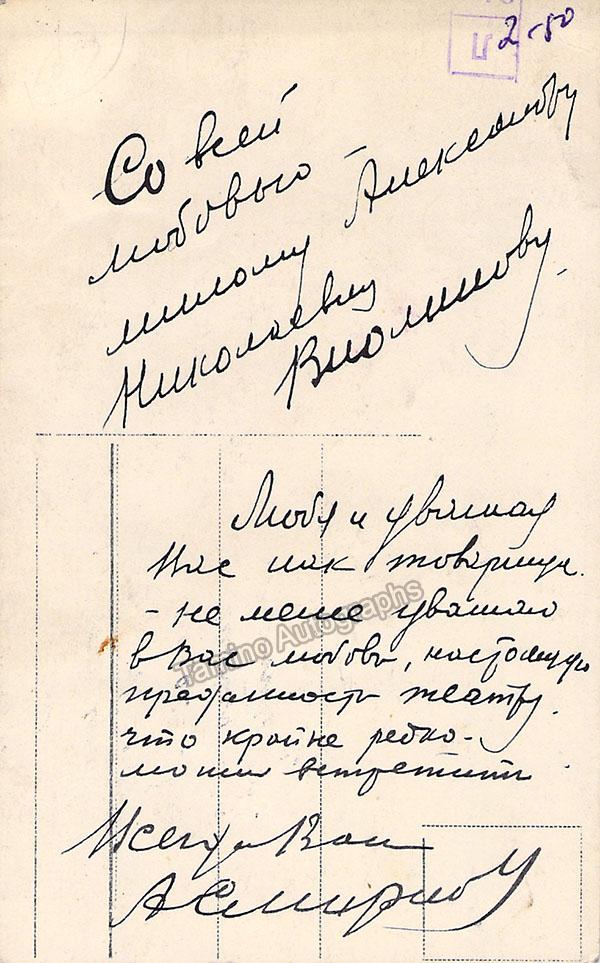 2-50
Со всей
любовью -
милому Александру
Николаевичу
Виолинову.
Любя и уважая
Вас как товарища
- не менее уважаю
в Вас любовь, настоящую
преданность театру,
что крайне редко -
можно встретить.
Всегда Ваш
А Смирнов
Tamino Autographs